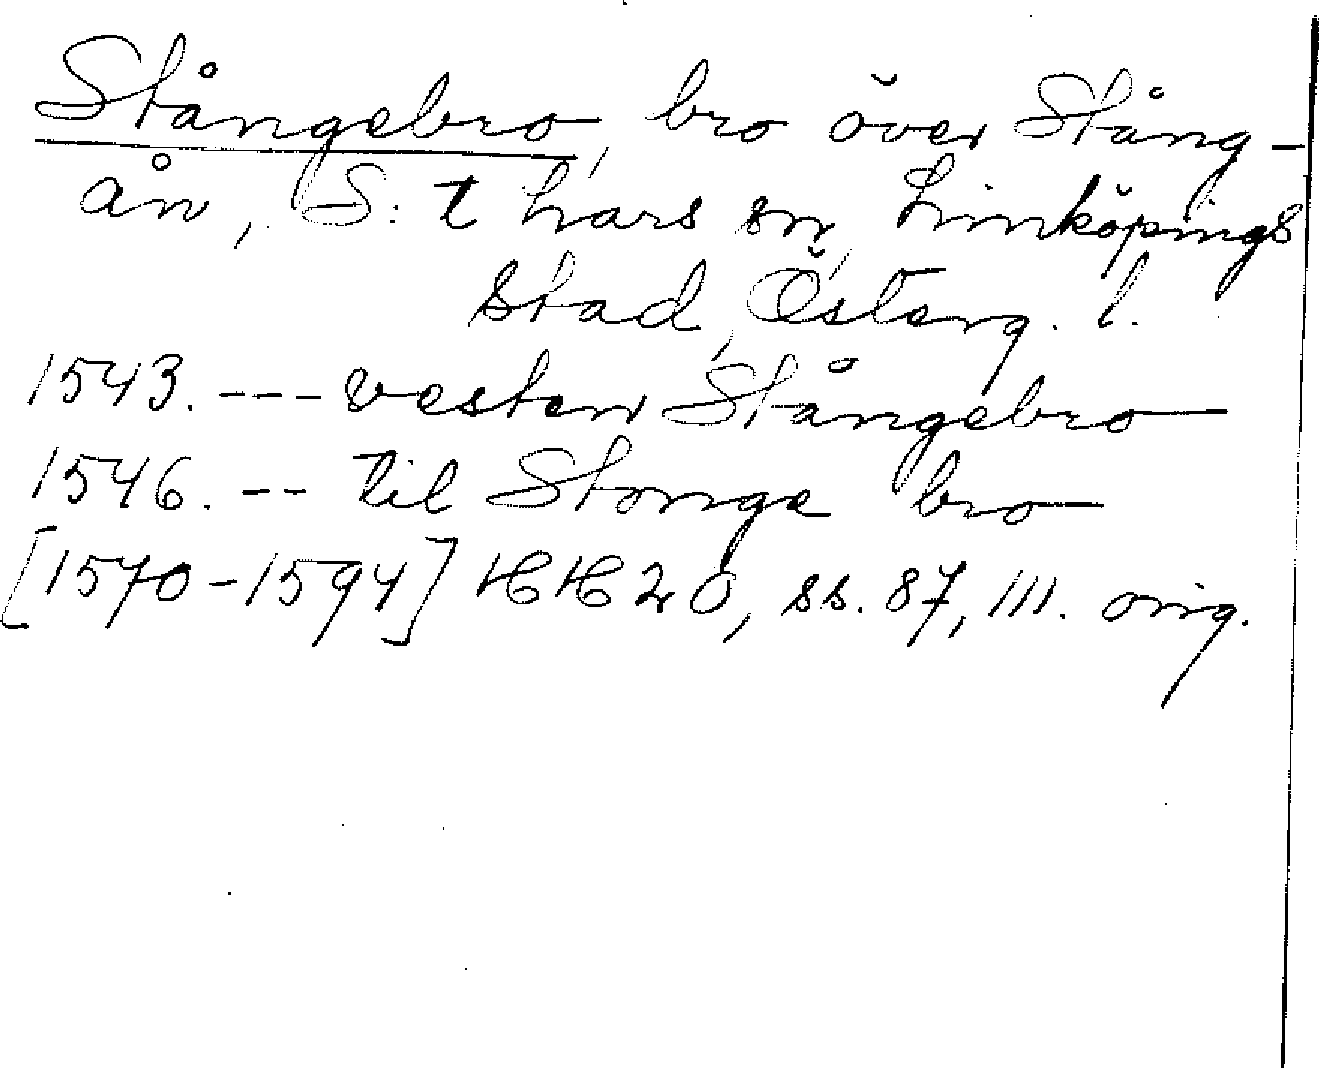 Stångebro, bro över Stång-
ån, S:t Lars sn, Linköpings
stad, Österg. l.
1543. --- vesten Stångebro
1546. -- til Stonge bro
[1570-1594] HH 20, ss. 87, 111. orig.